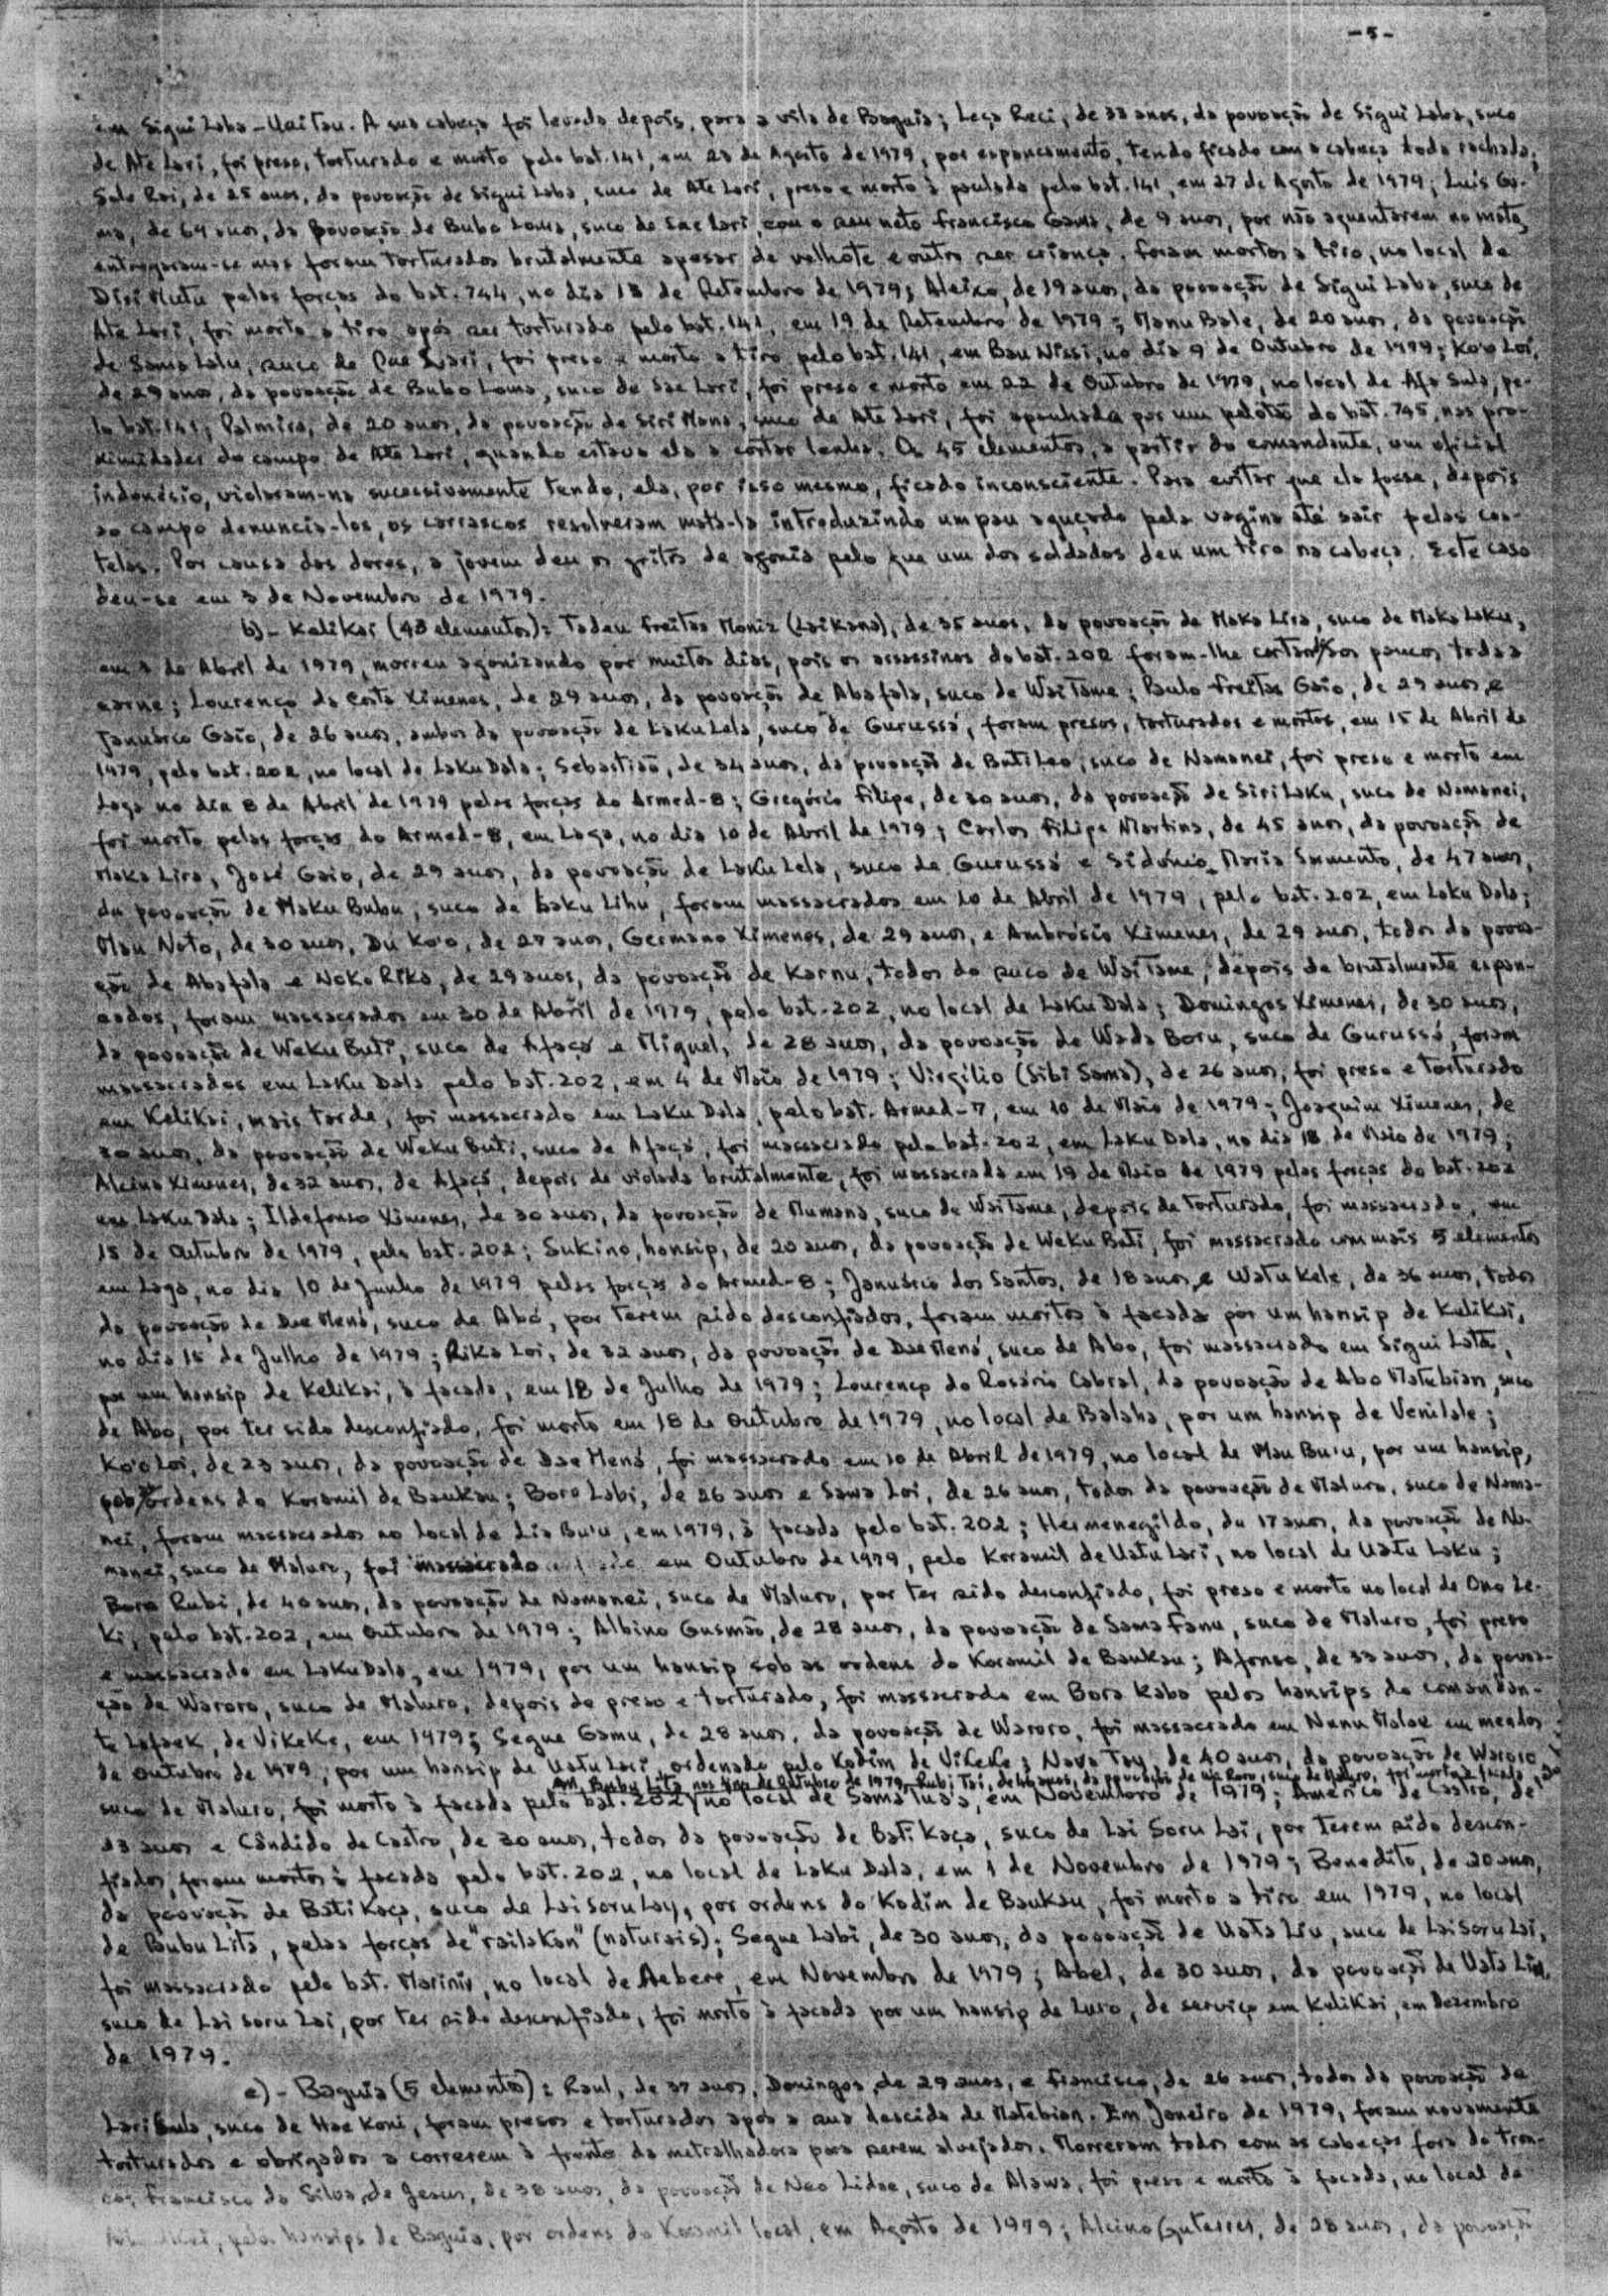 - 5 -
em Sigui Laba - Uai Tau. A sua cabeça foi levada depois, para a vila de Baguia; Leça Reci, de 33 anos, da povoação de Sigui Laba, suco
de Ate Lari, foi preso, torturado e morto pelo bat. 141, em 23 de Agosto de 1979, por espancamento, tendo ficado com a cabeça toda rachada;
Sala Rai, de 25 anos, da povoação de Sigui Laba, suco de Ate Lari, preso e morto à paulada pelo bat. 141, em 27 de Agosto de 1979; Luís Ga-
ma, de 64 anos, da povoação de Bubo Loma, suco de Sae Lari, com o seu neto Francisco Gama, de 9 anos, por não aguentarem no mato,
entregaram-se mas foram torturados brutalmente apesar de velhote e outro ser criança. Foram mortos a tiro, no local de
Disi Mutu pelas forças do bat. 744, no dia 13 de Setembro de 1979; Aleixo, de 19 anos, da povoação de Sigui Laba, suco de
Ate Lari, foi morto a tiro após ser torturado pelo bat. 141, em 19 de Setembro de 1979; Manu Bale, de 20 anos, da povoação
de Sama Lalu, suco de Sae Lari, foi preso e morto a tiro pelo bat. 141, em Bau Nissi, no dia 9 de Outubro de 1979; Ko'o Loi,
de 29 anos, da povoação de Bubo Loma, suco de Sae Lari, foi preso e morto em 22 de Outubro de 1979, no local de Afa Sula, pe-
lo bat. 141; Palmira, de 20 anos, da povoação de Siri Mana, suco de Ate Lari, foi apanhada por um pelotão do bat. 745, nas pro-
ximidades do campo de Ate Lari, quando estava ela a cortar lenha. Os 45 elementos, a partir do comandante, um oficial
indonésio, violaram-na sucessivamente tendo, ela, por isso mesmo, ficado inconsciente. Para evitar que ela fosse, depois
ao campo denuncia-los, os carrascos resolveram mata-la introduzindo um pau aguçado pela vagina até sair pelas cos-
telas. Por causa das dores, a jovem deu os gritos de agonia pelo que um dos soldados deu um tiro na cabeça. Este caso
deu-se em 3 de Novembro de 1979.
b) - Kelikai (43 elementos): Tadeu Freitas Moniz (Laikana), de 35 anos, da povoação de Maka Lira, suco de Maka Laku,
em de Abril de 1979, morreu agonizando por muitos dias, pois os assassinos do bat. 202 foram-lhe cortando aos poucos toda a
carne; Lourenço da Costa Ximenes, de 29 anos, da povoação de Abafala, suco de Wai Tame; Paulo Freitas Gaio, de 29 anos, e
Januário Gaio, de 26 anos, ambos da povoação de Laku Lela, suco de Gurussá, foram presos, torturados e mortos, em 15 de Abril de
1979, pelo bat. 202, no local de Laku Dala; Sebastião, de 34 anos, da povoação de Buti Leo, suco de Namanei, foi preso e morto em
Laga no dia 8 de Abril de 1979 pelas forças do Armed-8; Gregório Filipe, de 30 anos, da povoação de Siri Laku, suco de Namanei,
foi morto pelas forças do Armed-8, em Laga, no dia 10 de Abril de 1979; Carlos Filipe Martins, de 45 anos, da povoação de
Maka Lira, José Gaio, de 29 anos, da povoação de Laku Lela, suco de Gurussá e Sidónio Maria Sarmento, de 47 anos,
da povoação de Maku Bubu, suco de Laku Lihu, foram massacrados em 10 de Abril de 1979, pelo bat. 202, em Laku Dala;
Mau Noto, de 30 anos, Du Ko'o, de 27 anos, Germano Ximenes, de 29 anos, e Ambrósio Ximenes, de 29 anos, todos da povoa-
ção de Abafala e Noko Rika, de 29 anos, da povoação de Karnu, todos do suco de Wai Tame, depois de brutalmente espan-
cados, foram massacrados em 30 de Abril de 1979, pelo bat. 202, no local de Laku Dala; Domingos Ximenes, de 30 anos,
da povoação de Weku Buti, suco de Afaçá e Miguel, de 28 anos, da povoação de Wada Boru, suco de Gurussá, foram
massacrados em Laku Dala pelo bat. 202, em 4 de Maio de 1979; Virgílio (Sibi Sama), de 26 anos, foi preso e torturado
em Kelikai, mais tarde, foi massacrado em Laku Dala, pelo bat. Armed-7, em 10 de Maio de 1979; Joaquim Ximenes, de
30 anos, da povoação de Weku Buti, suco de Afaçá, foi massacrado pelo bat. 202, em Laku Dala, no dia 18 de Maio de 1979;
Alcina Ximenes, de 32 anos, de Afaçá, depois de violada brutalmente, foi massacrada em 19 de Maio de 1979 pelas forças do bat. 202
em Laku Dala; Ildefonso Ximenes, de 30 anos, da povoação de Mumana, suco de Wai Tame, depois de torturado, foi massacrado, em
15 de Outubro de 1979, pelo bat. 202; Sukino, hansip, de 20 anos, da povoação de Weku Bati, foi massacrado com mais 5 elementos
em Laga, no dia 10 de Junho de 1979 pelas forças do Armed-8; Januário dos Santos, de 18 anos, e Watu Kele, de 36 anos, todos
da povoação de Dae Mená, suco de Abó, por terem sido desconfiados, foram mortos à facada por um hansip de Kelikai,
no dia 15 de Julho de 1979; Rika Loi, de 32 anos, da povoação de Dae Mená, suco de Abo, foi massacrado em Sigui Lata,
por um hansip de Kelikai, à facada, em 18 de Julho de 1979; Lourenço do Rosário Cabral, da povoação de Abo Matebian, suco
de Abo, por ter sido desconfiado, foi morto em 18 de Outubro de 1979, no local de Balaha, por um hansip de Venilale;
Ko'o Loi, de 23 anos, da povoação de Dae Mená, foi massacrado em 10 de Abril de 1979, no local de Mau Bu'u, por um hansip,
sob ordens do Koramil de Baukau; Boro Labi, de 26 anos e Sawa Loi, de 26 anos, todos da povoação de Maluro, suco de Nama-
nei, foram massacrados no local de Lia Bu'u, em 1979, à facada pelo bat. 202; Hermenegildo, de 17 anos, da povoação de Na-
manei, suco de Maluro, foi massacrado em Outubro de 1979, pelo Koramil de Uatu Lari, no local de Uatu Laku;
Boro Rubi, de 40 anos, da povoação de Namanei, suco de Maluro, por ter sido desconfiado, foi preso e morto no local de Ono Le-
ki, pelo bat. 202, em Outubro de 1979; Albino Gusmão, de 28 anos, da povoação de Sama Fanu, suco de Maluro, foi preso
e massacrado em Laku Dala, em 1979, por um hansip sob as ordens do Koramil de Baukau; Afonso, de 33 anos, da povoa-
ção de Waroro, suco de Maluro, depois de preso e torturado, foi massacrado em Bora Kabo pelos hansips do comandan-
te Lafaek, de Vikeke, em 1979; Segue Gamu, de 28 anos, da povoação de Waroro, foi massacrado em Nunu Malae em meados
de Outubro de 1979, por um hansip de Uatu Lari, ordenado pelo Kodim de Vikeke; Nava Tay, de 40 anos, da povoação de Waroro
em Bubu Lita nos fins de Outubro de 1979, Rubi Tai, de 46 anos, da povoação de Wa Roro, suco de Maluro, foi morto à facada
suco de Maluro, foi morto à facada pelo bat. 202, no local de Sama Lua's, em Novembro de 1979; Américo de Castro, de
23 anos e Cândido de Castro, de 20 anos, todos da povoação de Bati Kaça, suco de Lai Soru Lai, por terem sido descon-
fiados, foram mortos à facada pelo bat. 202, no local de Laku Dala, em 1 de Novembro de 1979; Benedito, de 20 anos,
da povoação de Bati Kaça, suco de Lai Soru Lay, por ordens do Kodim de Baukau, foi morto a tiro em 1979, no local
de Bubu Lita, pelas forças de "railakan" (naturais); Segue Labi, de 30 anos, da povoação de Uata Liu, suco de Lai Soru Lai,
foi massacrado pelo bat. Mariniv, no local de Aebere, em Novembro de 1979; Abel, de 30 anos, da povoação de Uata Liu,
suco de Lai Soru Lai, por ter sido desconfiado, foi morto à facada por um hansip de Luro, de serviço em Kelikai, em Dezembro
de 1979.
c) - Baguia (5 elementos): Raul, de 37 anos, Domingos, de 29 anos, e Francisco, de 26 anos, todos da povoação de
Lari Sula, suco de Hae Koni, foram presos e torturados após a sua descida de Matebian. Em Janeiro de 1979, foram novamente
torturados e obrigados a correrem à frente da metralhadora para serem alvejados. Morreram todos com as cabeças fora do tron-
co; Francisco da Silva de Jesus, de 38 anos, da povoação de Nao Lidae, suco de Alawa, foi preso e morto à facada, no local de
pelos hansips de Baguia, por ordens do Koramil local, em Agosto de 1979; Alcino Guterres, de 28 anos, da povoação